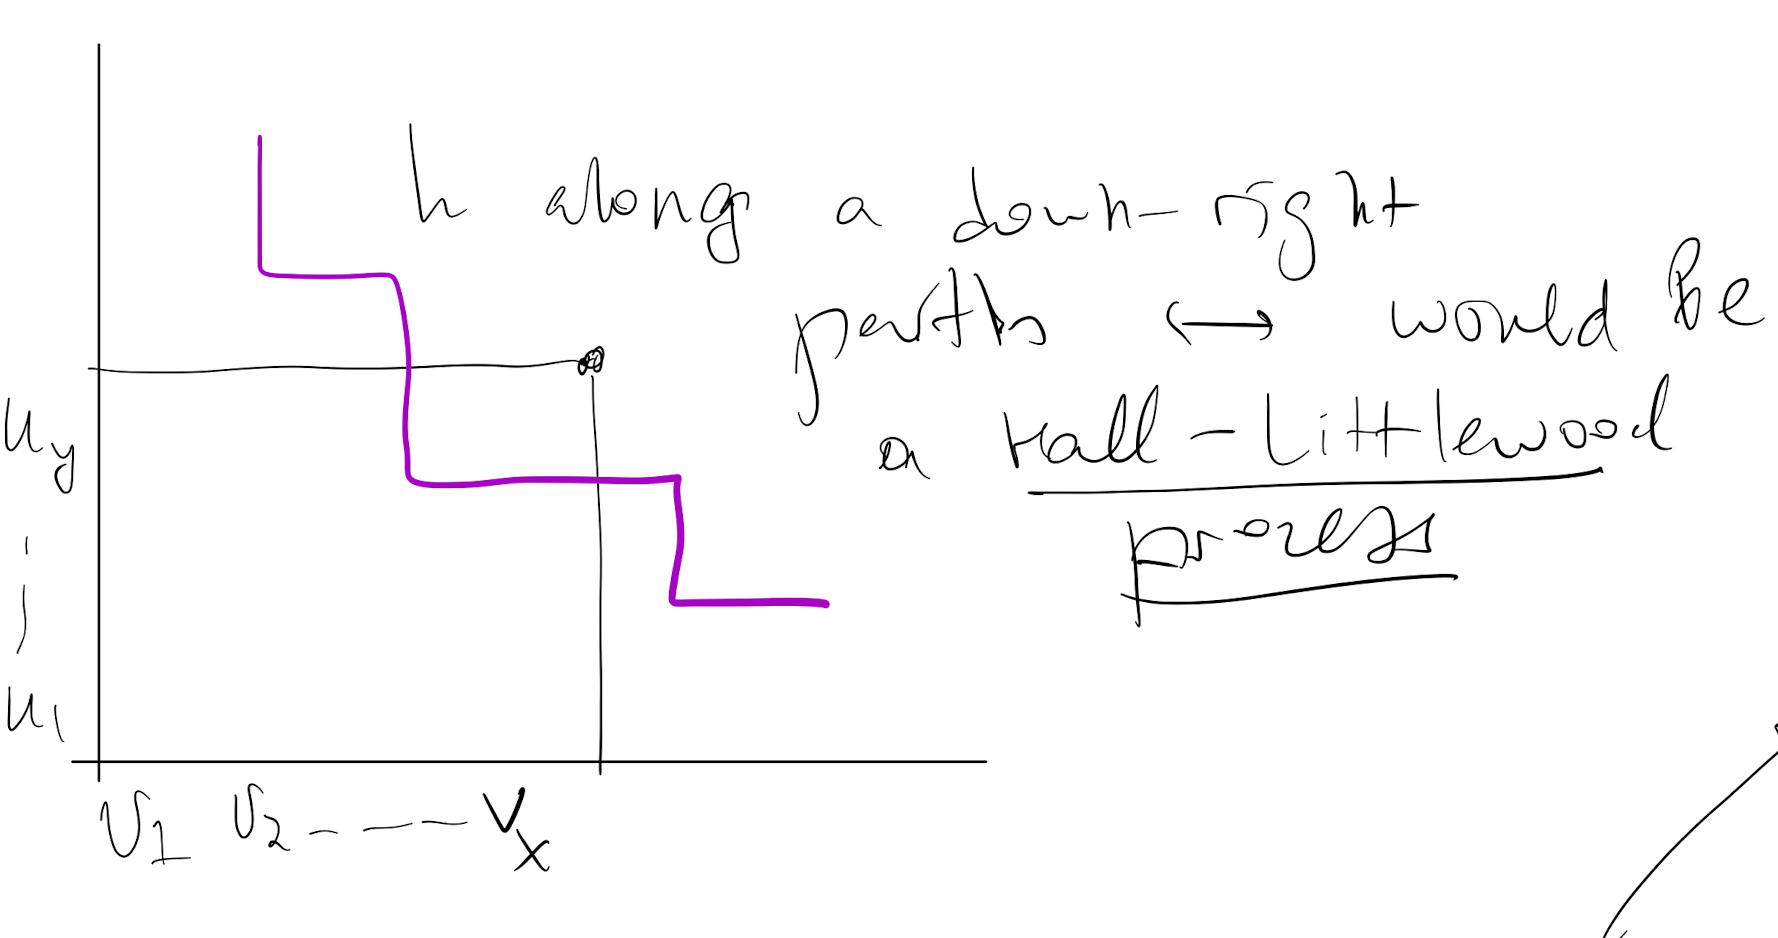 h along a down-right
paths ↔ would be
a Hall-Littlewood
process
u_y
u_1
v_1 v_2 - - - - v_x